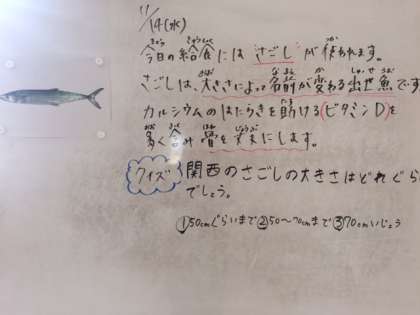 11/14(水)
今日の給食には さごし が 使われます。
さごしは、大きさによって名前が変わる出世魚です
カルシウムのはたらきを助ける(ビタミンD)を
多く含み 骨を丈夫にします。
クイズ 関西のさごしの大きさはどれぐら
でしょう。
①50cmぐらいまで②50〜70cmまで③70cmいじょう